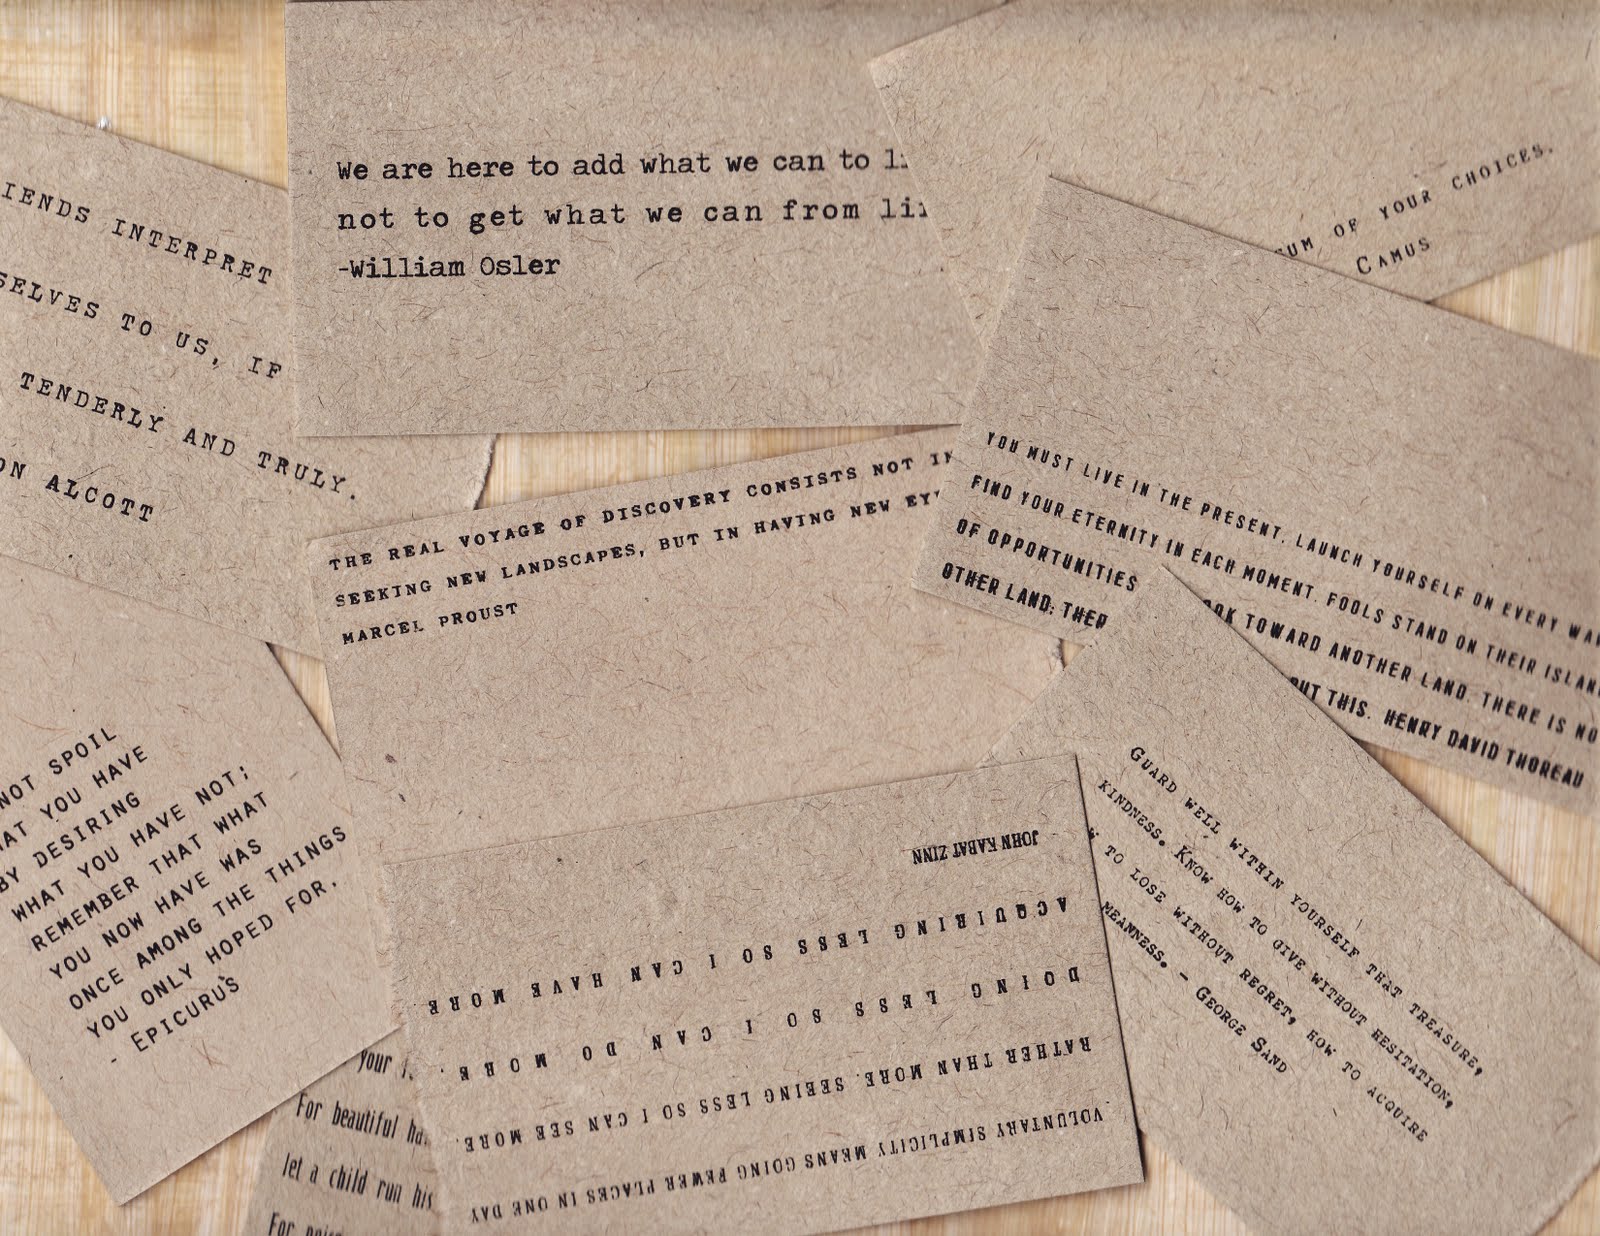 We are here to add what we can to
not to get what we can from
-William Osler
OF YOUR CHOICES.
CAMUS
INTERPRET
TO US, IF
TENDERLY AND TRULY.
ALCOTT
THE REAL VOYAGE OF DISCOVERY CONSISTS NOT
SEEKING NEW LANDSCAPES, BUT IN HAVING NEW
MARCEL PROUST
YOU MUST LIVE IN THE PRESENT, LAUNCH YOURSELF ON EVERY
FIND YOUR ETERNITY IN EACH MOMENT. FOOLS STAND ON THEIR
OF OPPORTUNITIES TOWARD ANOTHER LAND. THERE IS NO
OTHER LAND; THIS. HENRY DAVID THOREAU
NOT SPOIL
YOU HAVE
BY DESIRING
WHAT YOU HAVE NOT;
REMEMBER THAT WHAT
YOU NOW HAVE WAS
ONCE AMONG THE THINGS
YOU ONLY HOPED FOR.
- EPICURUS
GUARD WELL WITHIN YOURSELF THAT TREASURE,
KINDNESS. KNOW HOW TO GIVE WITHOUT HESITATION,
TO LOSE WITHOUT REGRET, HOW TO ACQUIRE
MEANNESS. - GEORGE SAND
VOLUNTARY SIMPLICITY MEANS GOING FEWER PLACES IN ONE DAY
RATHER THAN MORE. SEEING LESS SO I CAN SEE MORE.
DOING LESS SO I CAN DO MORE.
ACQUIRING LESS SO I CAN HAVE MORE
JOHN KABAT ZINN
your
For beautiful
let a child run his
For